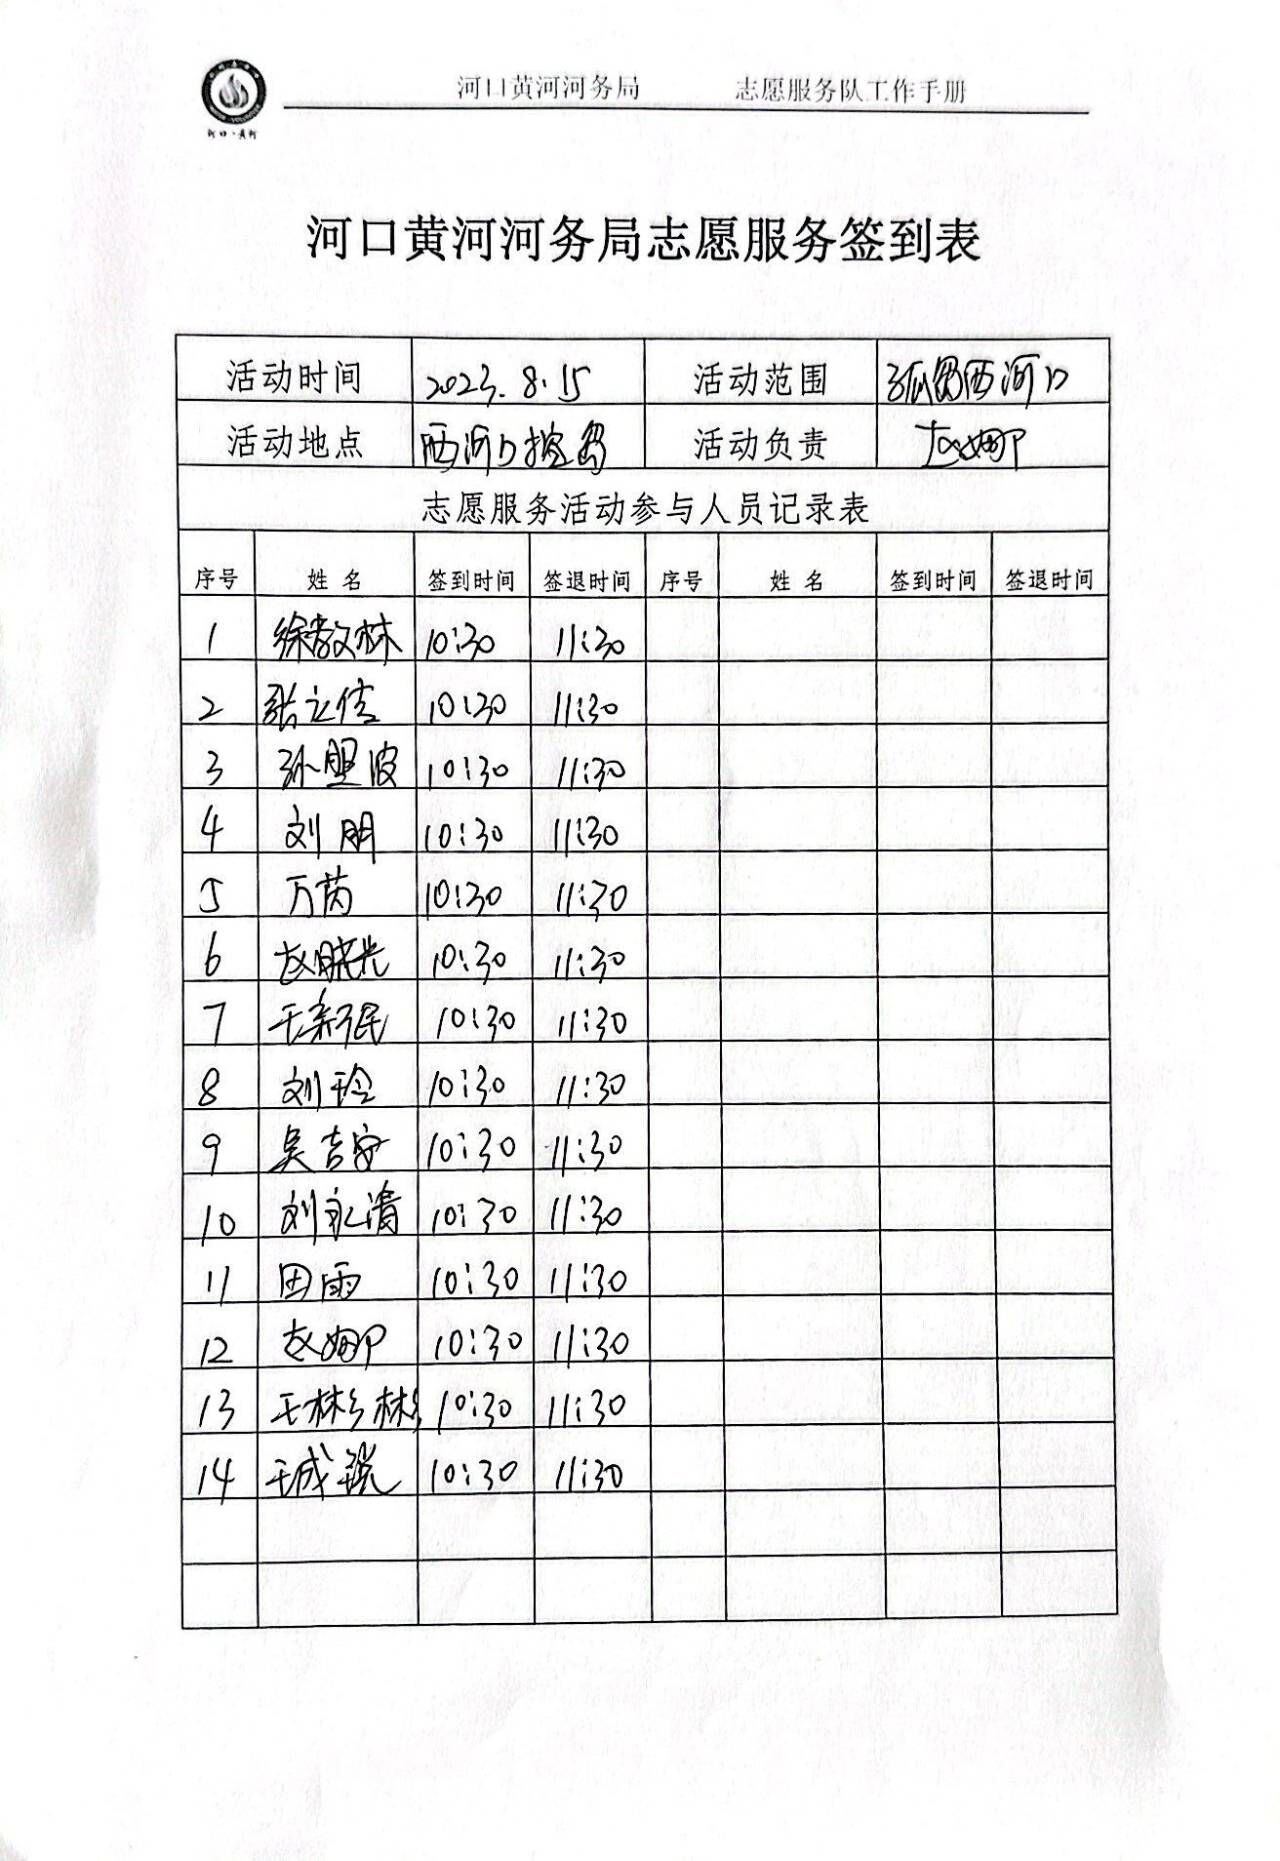 河口黄河河务局 志愿服务队工作手册
河口·黄河
河口黄河河务局志愿服务签到表
活动时间 2023.8.15 活动范围 孤岛西河口
活动地点 西河口控导 活动负责 赵娜
志愿服务活动参与人员记录表
序号 姓名 签到时间 签退时间 序号 姓名 签到时间 签退时间
1 徐敬林 10:30 11:30
2 张立信 10:30 11:30
3 孙盟波 10:30 11:30
4 刘朋 10:30 11:30
5 万芮 10:30 11:30
6 赵晓光 10:30 11:30
7 王新民 10:30 11:30
8 刘玲 10:30 11:30
9 吴吉安 10:30 11:30
10 刘永清 10:30 11:30
11 田雨 10:30 11:30
12 赵娜 10:30 11:30
13 王彬彬 10:30 11:30
14 王成锐 10:30 11:30